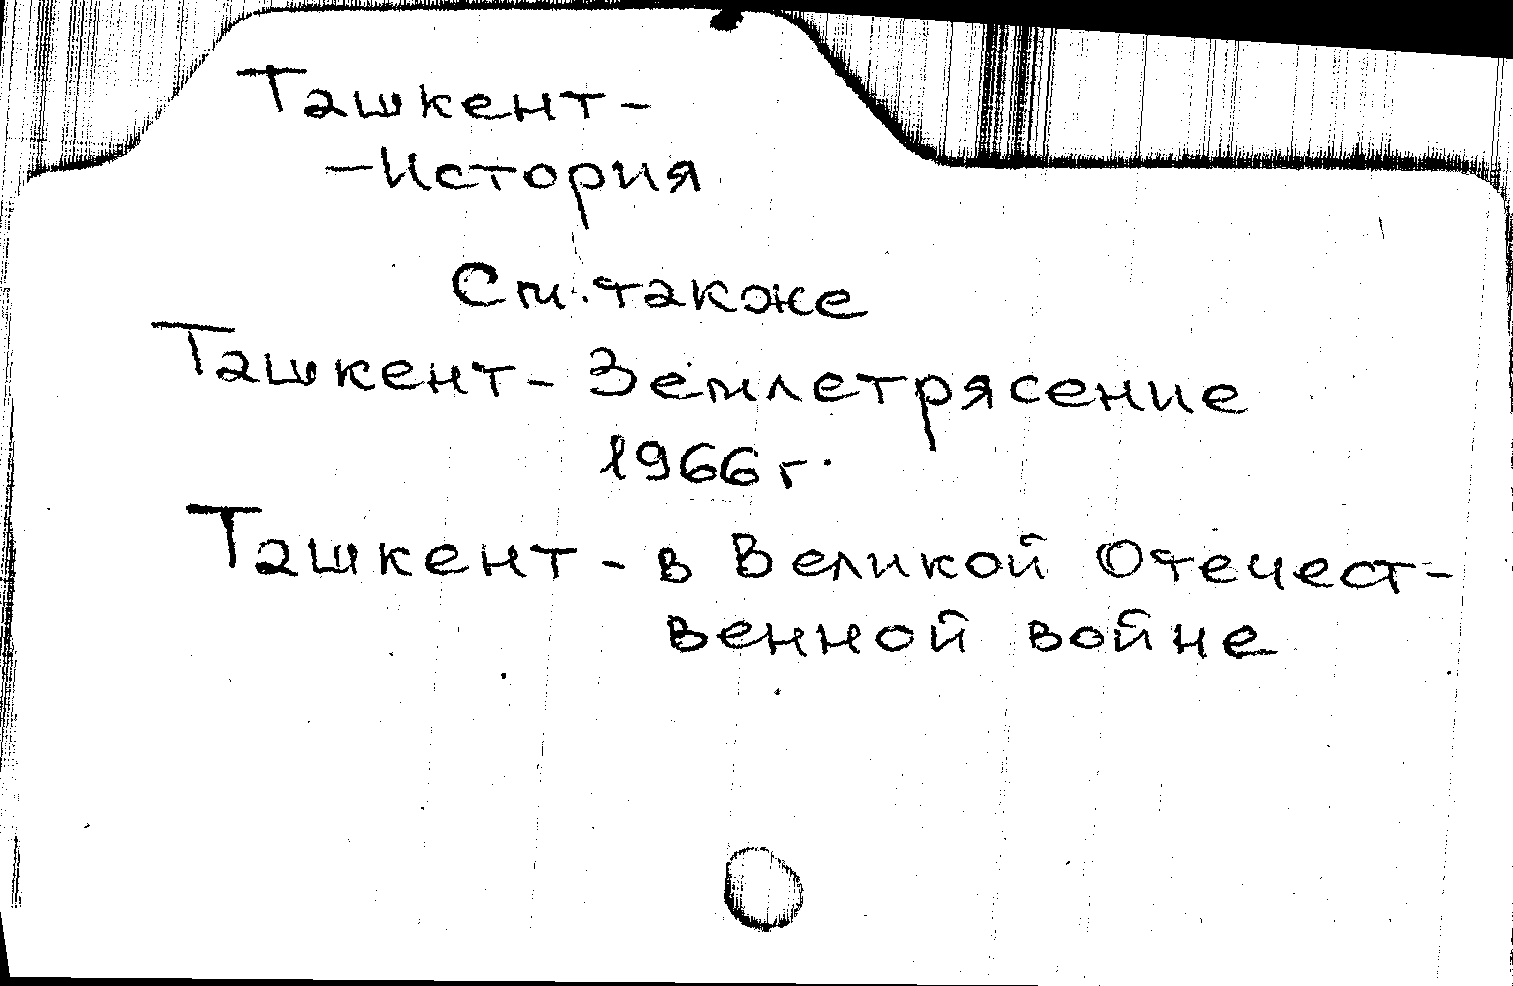 Ташкент-
-История
См. также
Ташкент - Землетрясение
1966 г.
Ташкент - в Великой Отечест-
венной войне